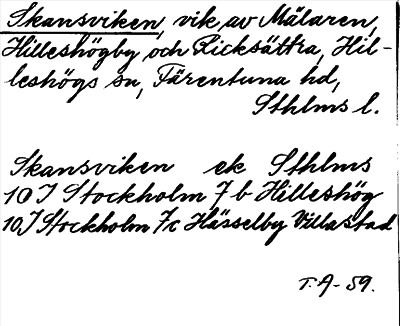 Skansviken, vik av Mälaren,
Hilleshögby och Ricksättra, Hil-
leshögs sn, Färentuna hd,
Sthlms l.
Skansviken ek Sthlms
10 I Stockholm 7 b Hilleshög
10 I Stockholm 7c Hässelby Villastad
T.A. 59.